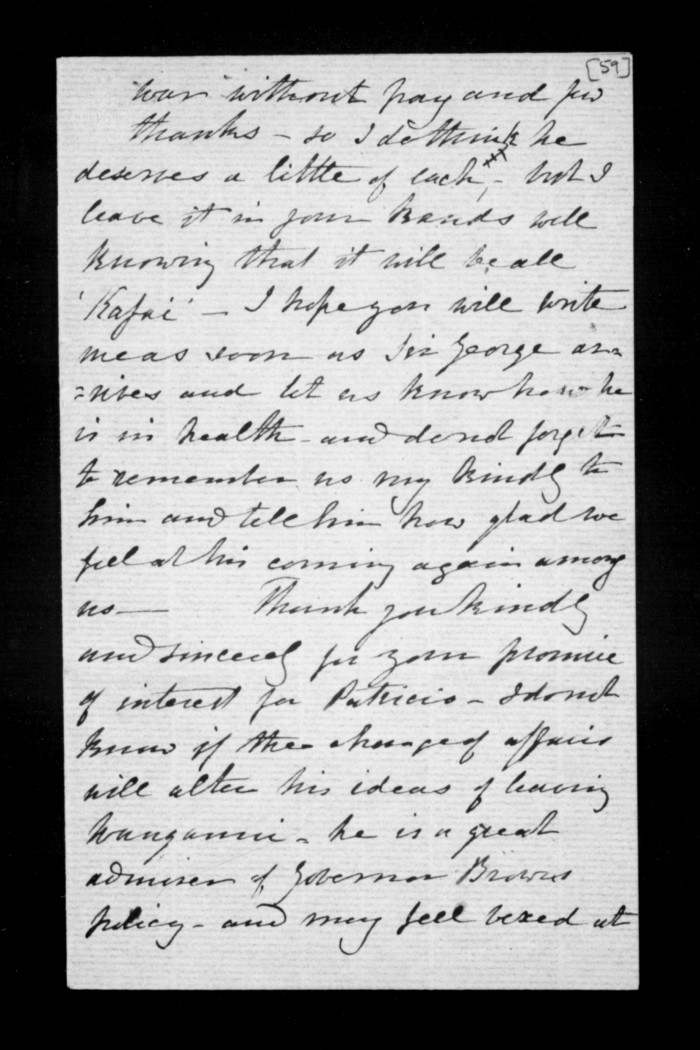 [59]
war without pay and few
thanks - so I do think he
deserves a little of each, - but I
leave it in your hands well
knowing that it will be all
'Kapai' - I hope you will write
me as soon as Sir George ar=
=rives and let us know how he
is in health - and do not forget
to remember us my kindly to
him and tell him how glad we
feel at his coming again among
us — Thank you kindly
and sincerely for your promise
of interest for Patricio - I do not
know if the change of affairs
will alter his ideas of leaving
Wanganui - he is a great
admirer of Governor Browns
policy - and may feel vexed at